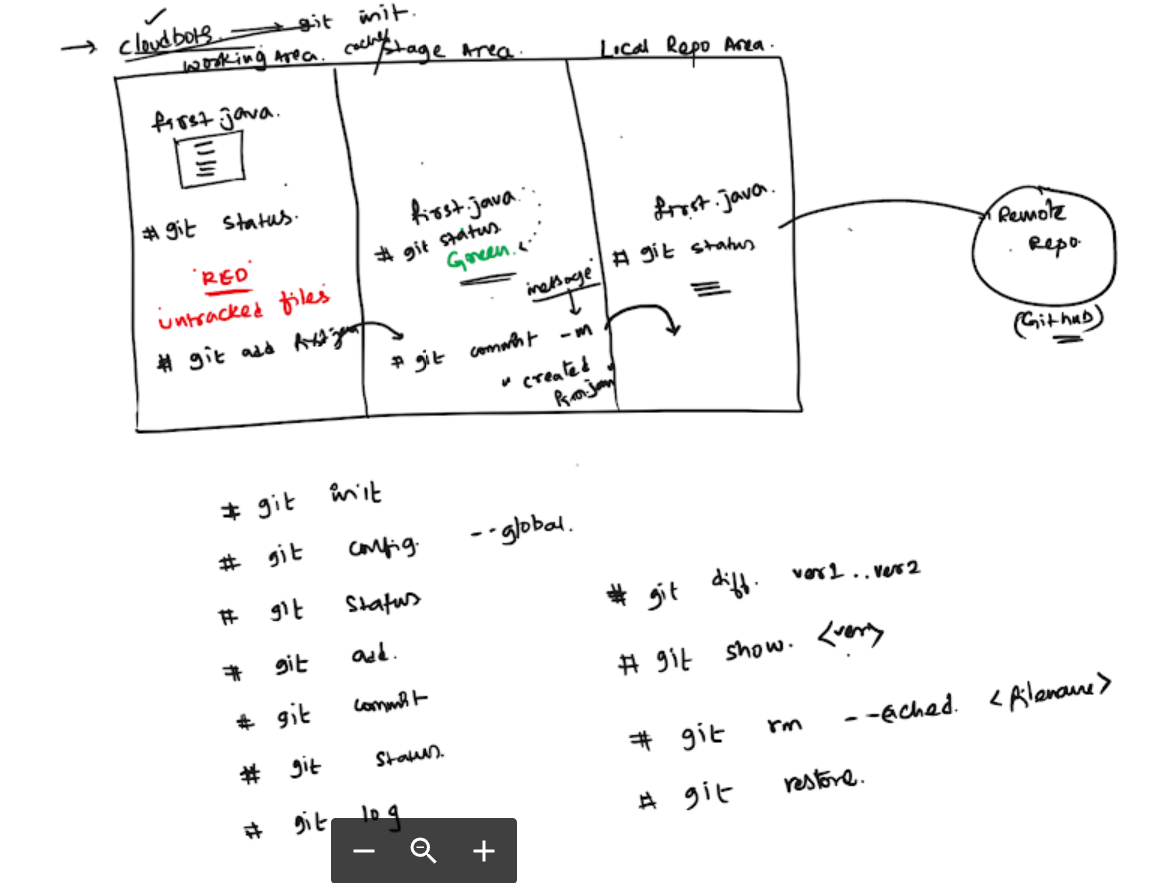 → cloudbots. → git init.
working Area.
cached/Stage Area.
Local Repo Area.
first.java.
# git status.
"RED"
untracked files
# git add first.java
first.java
# git status.
Green.
message
# git commit -m
" created "
first.java
# git status
Remote
Repo.
(GitHub)
# git init
# git config. --global.
# git status
# git add.
# git commit
# git status.
# git log
# git diff. ver1..ver2
# git show. <ver>
# git rm --cached. <filename>
# git restore.